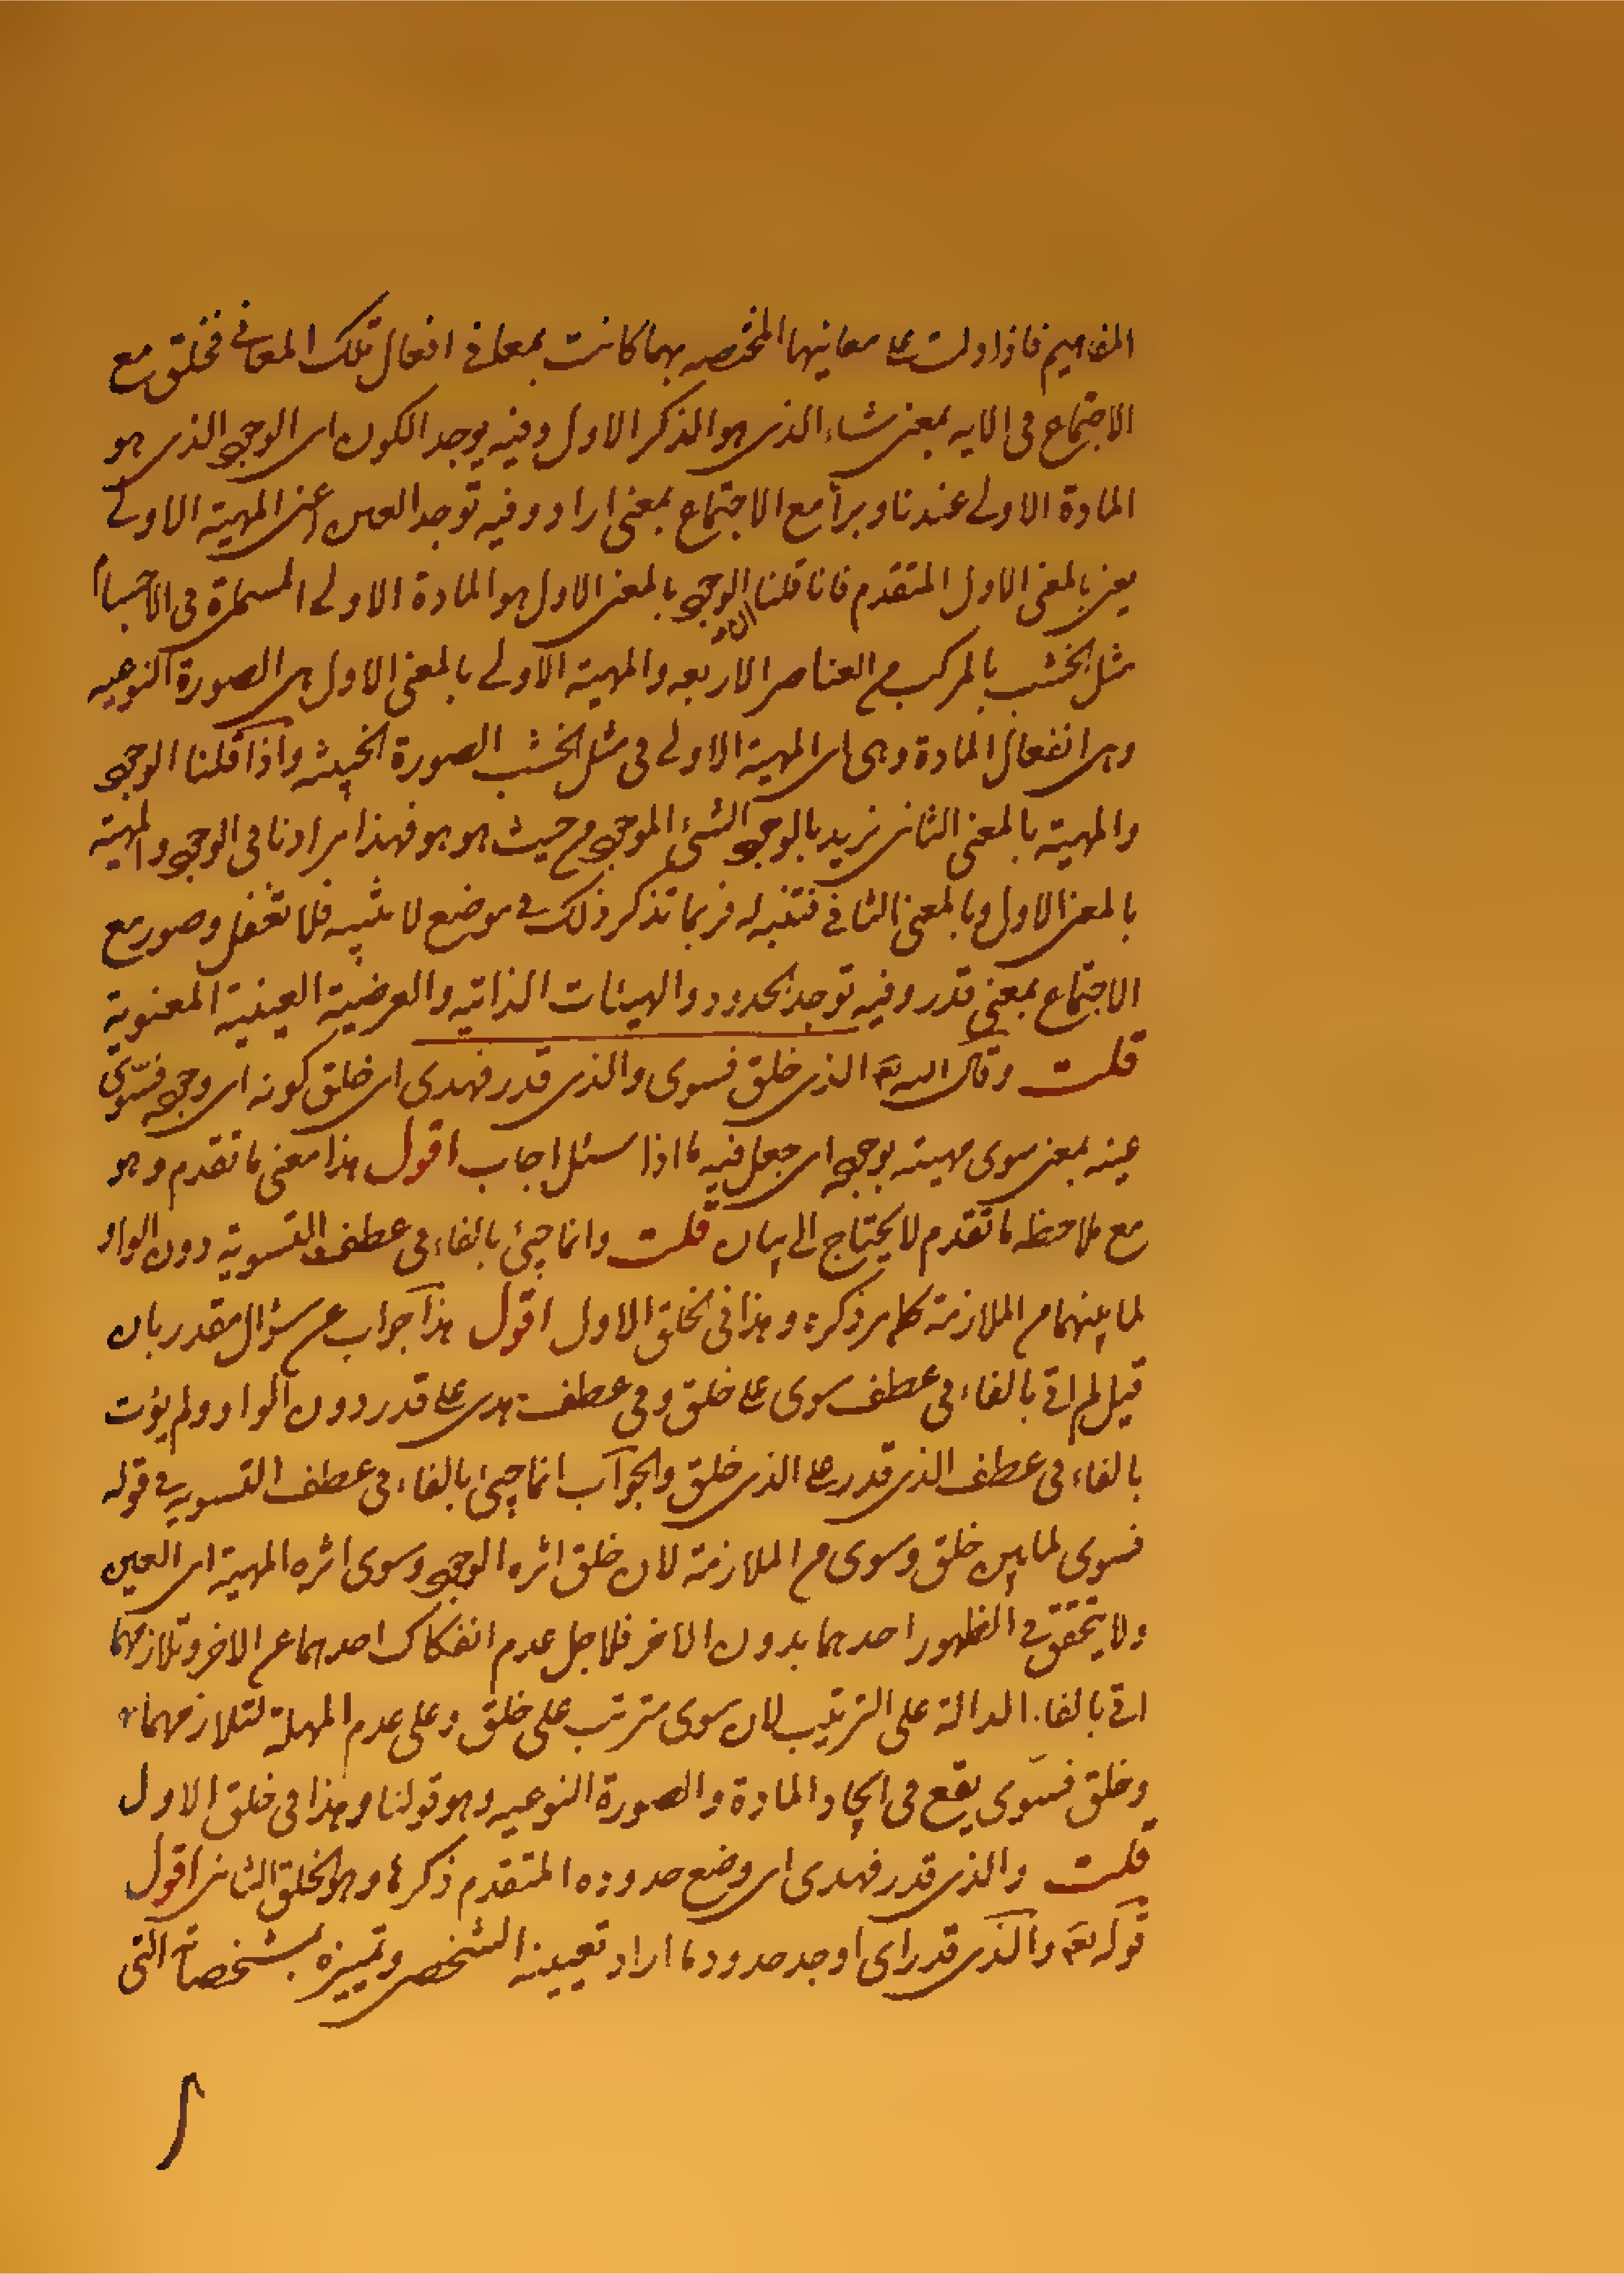 المفاهيم فاذا دلت على معانيها المختصه بهما كانت بمعانى افعال تلك المعانى فخلق مع
الاجتماع فى الايه بمعنى شاء الذى هو الذكر الاول وفيه يوجد الكون اى الوجود الذى هو
المادة الاولى عندنا وبرأ مع الاجتماع بمعنى اراد وفيه توجد العين اعنى المهية الاولى
يعنى بالمعنى الاول المتقدم فانا قلنا ان الوجود بالمعنى الاول هو المادة الاولى المستمرة فى الاجسام
مثل الخشب بالمركب من العناصر الاربعه والمهية الاولى بالمعنى الاول هى الصورة النوعيه
وهى انفعال المادة وهى اى المهية الاولى فى مثل الخشب الصورة الخشبيه واذا قلنا الوجود
والمهية بالمعنى الثانى نريد بالوجود الشئ الموجود من حيث هو هو فهذا مرادنا فى الوجود والمهية
بالمعنى الاول وبالمعنى الثانى فتنبه له فربما تذكر ذلك فى موضع لا ننبه فلا تغفل وصور مع
الاجتماع بمعنى قدر وفيه توجد الحدود والهيئات الذاتيه والعرضية العينية المعنوية
قلت وقال الله تع الذى خلق فسوى والذى قدر فهدى اى خلق كونه اى وجوده فسّوى
عينه بمعنى سوى مهيته بوجوده اى جعل فيه ما اذا سئل اجاب اقول هذا معنى ما تقدم وهو
مع ملاحظه ما تقدم لا يحتاج الى بيان قلت وانما جئ بالفاء فى عطف التسوية دون الواو
لما بينهما من الملازمة كما مر ذكره وهذا فى الخلق الاول اقول هذا جواب عن سؤال مقدر بان
قيل لم اتى بالفاء فى عطف سوى على خلق وفى عطف هدى على قدر دون الواو ولم يؤت
بالفاء فى عطف الذى قدر على الذى خلق والجواب انما جئ بالفاء فى عطف التسويه فى قوله
فسوى لما بين خلق وسوى من الملازمة لان خلق اثره الوجود وسوى اثره المهية اى العين
ولا يتحقق فى الظهور احدهما بدون الاخر فلاجل عدم انفكاك احدهما عن الاخر وتلازمهما
اتى بالفاء الدالة على الترتيب لان سوى مترتب على خلق وعلى عدم المهلة لتلازمهما
وخلق فسّوى يقع فى ايجاد المادة والصورة النوعيه وهو قولنا وهذا فى خلق الاول
قلت والذى قدر فهدى اى وضع حدوده المتقدم ذكرها وهو الخلق الثانى اقول
قوله تع والذى قدر اى اوجد حدود ما اراد تعيينه الشخصى وتميزه بمشخصاته التى